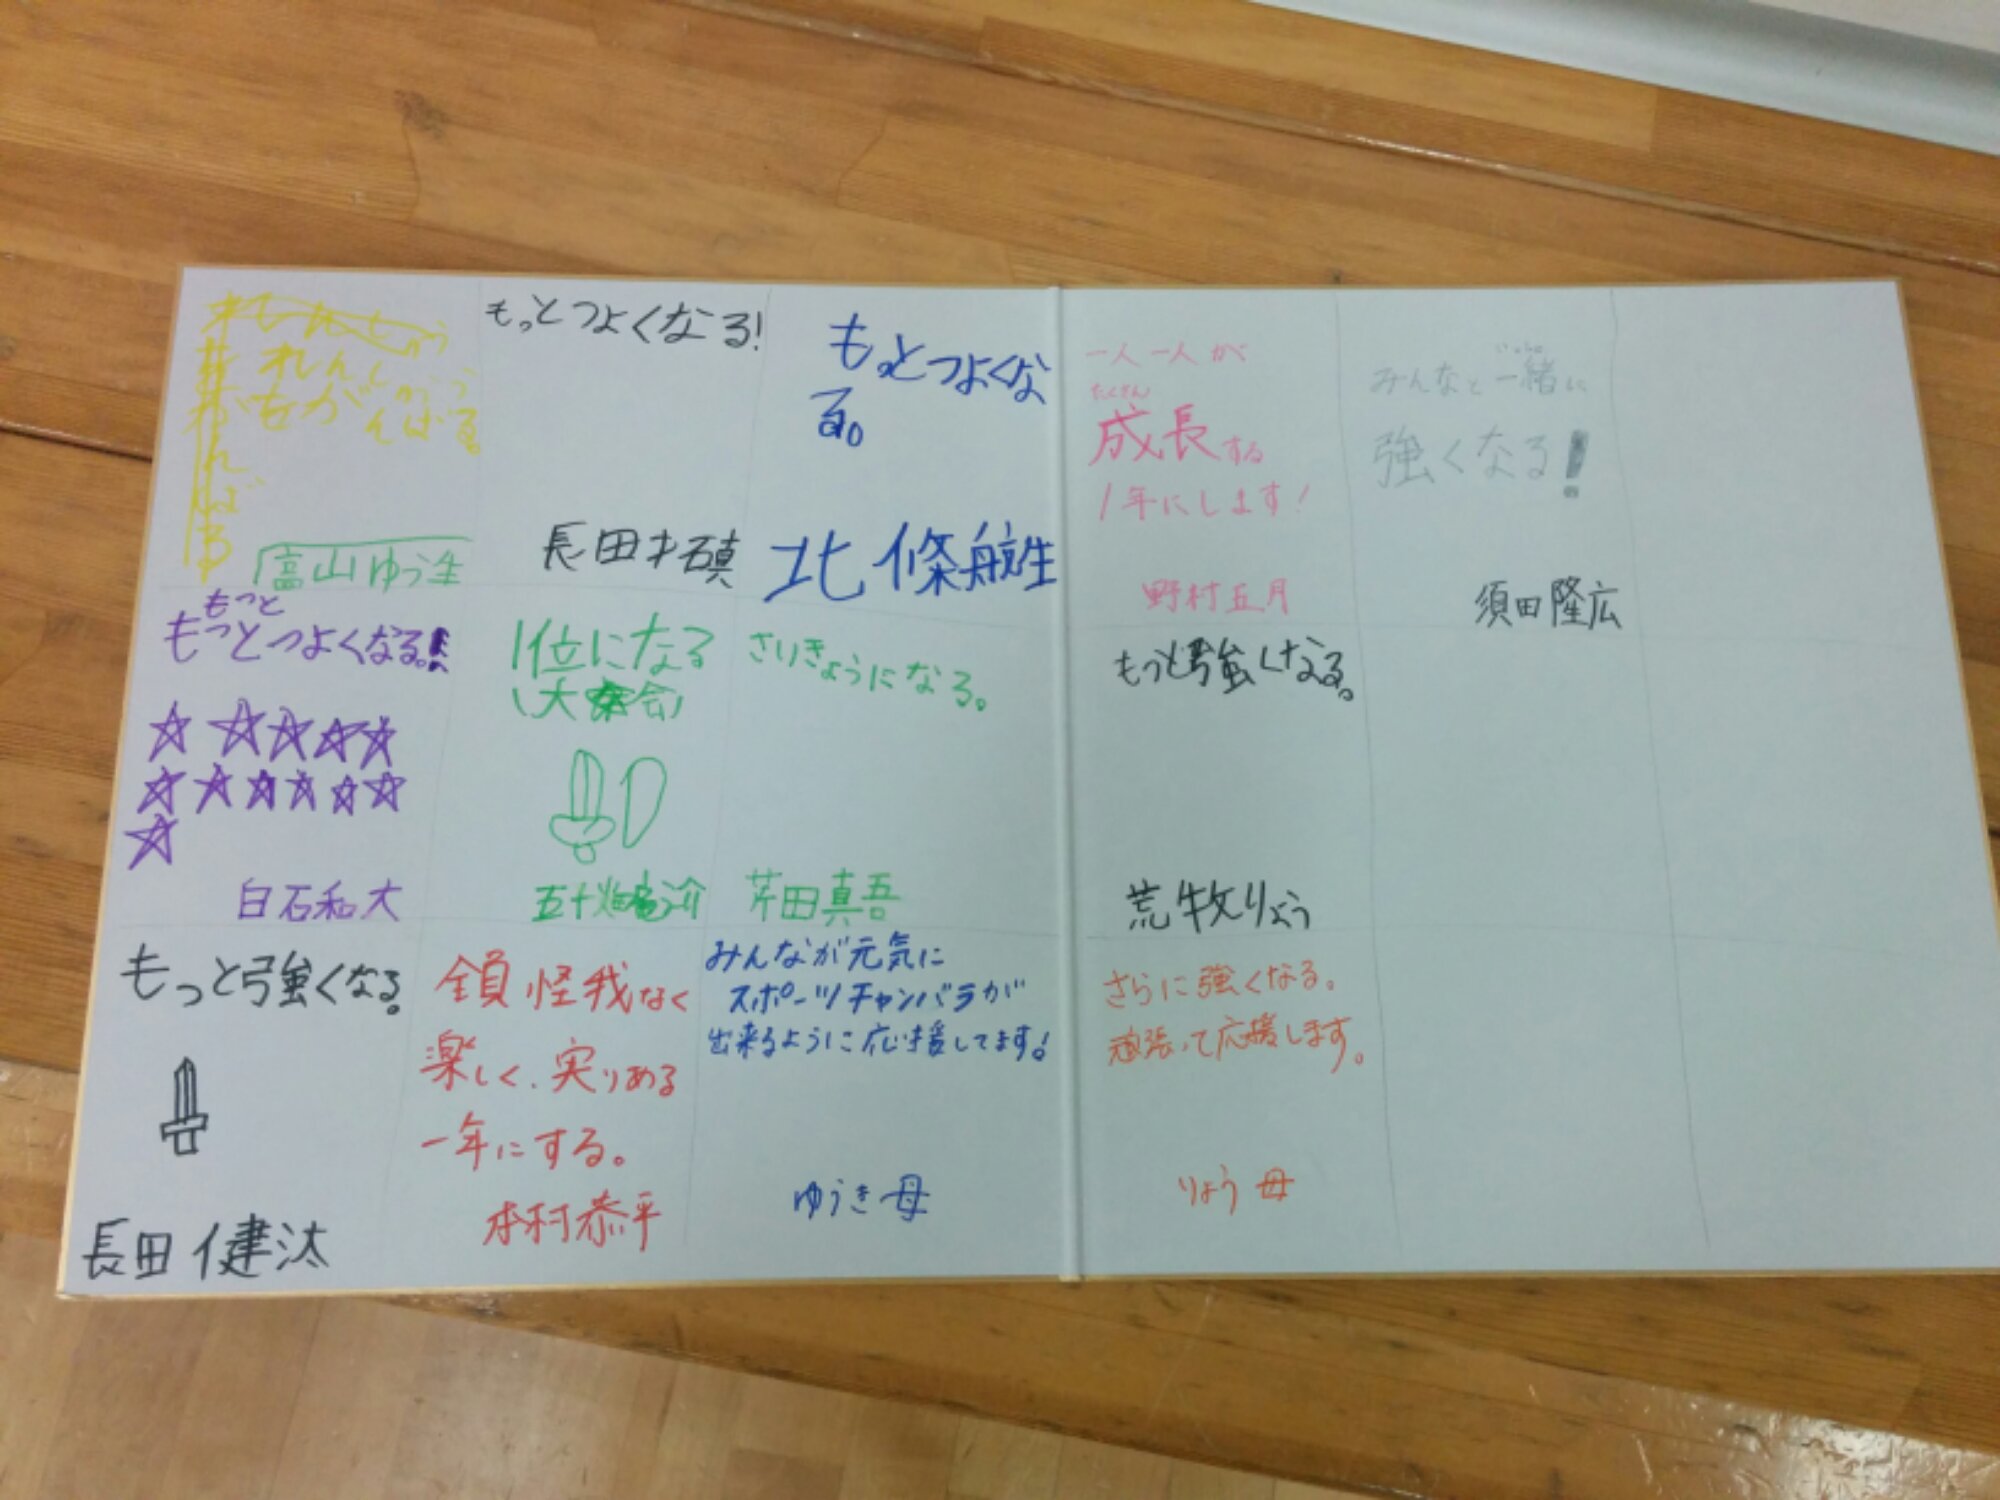 れんしゅう
をがんばる
れんしゅう
をがんばる。
富山ゆう生
もっとつよくなる!
長田才禛
もっとつよくな
る。
北條航生
一人一人が
たくさん
成長する
1年にします!
野村五月
いっしょ
みんなと一緒に
強くなる!
須田隆広
もっと
もっとつよくなる。!
白石和大
1位になる
(大会)
五十畑竜介
さいきょうになる。
芹田真吾
もっと強くなる。
荒牧りょう
もっと強くなる。
長田健汰
全員怪我なく
楽しく、実りある
一年にする。
本村恭平
みんなが元気に
スポーツチャンバラが
出来るように応援してます!
ゆうき母
さらに強くなる。
頑張って応援します。
りょう母